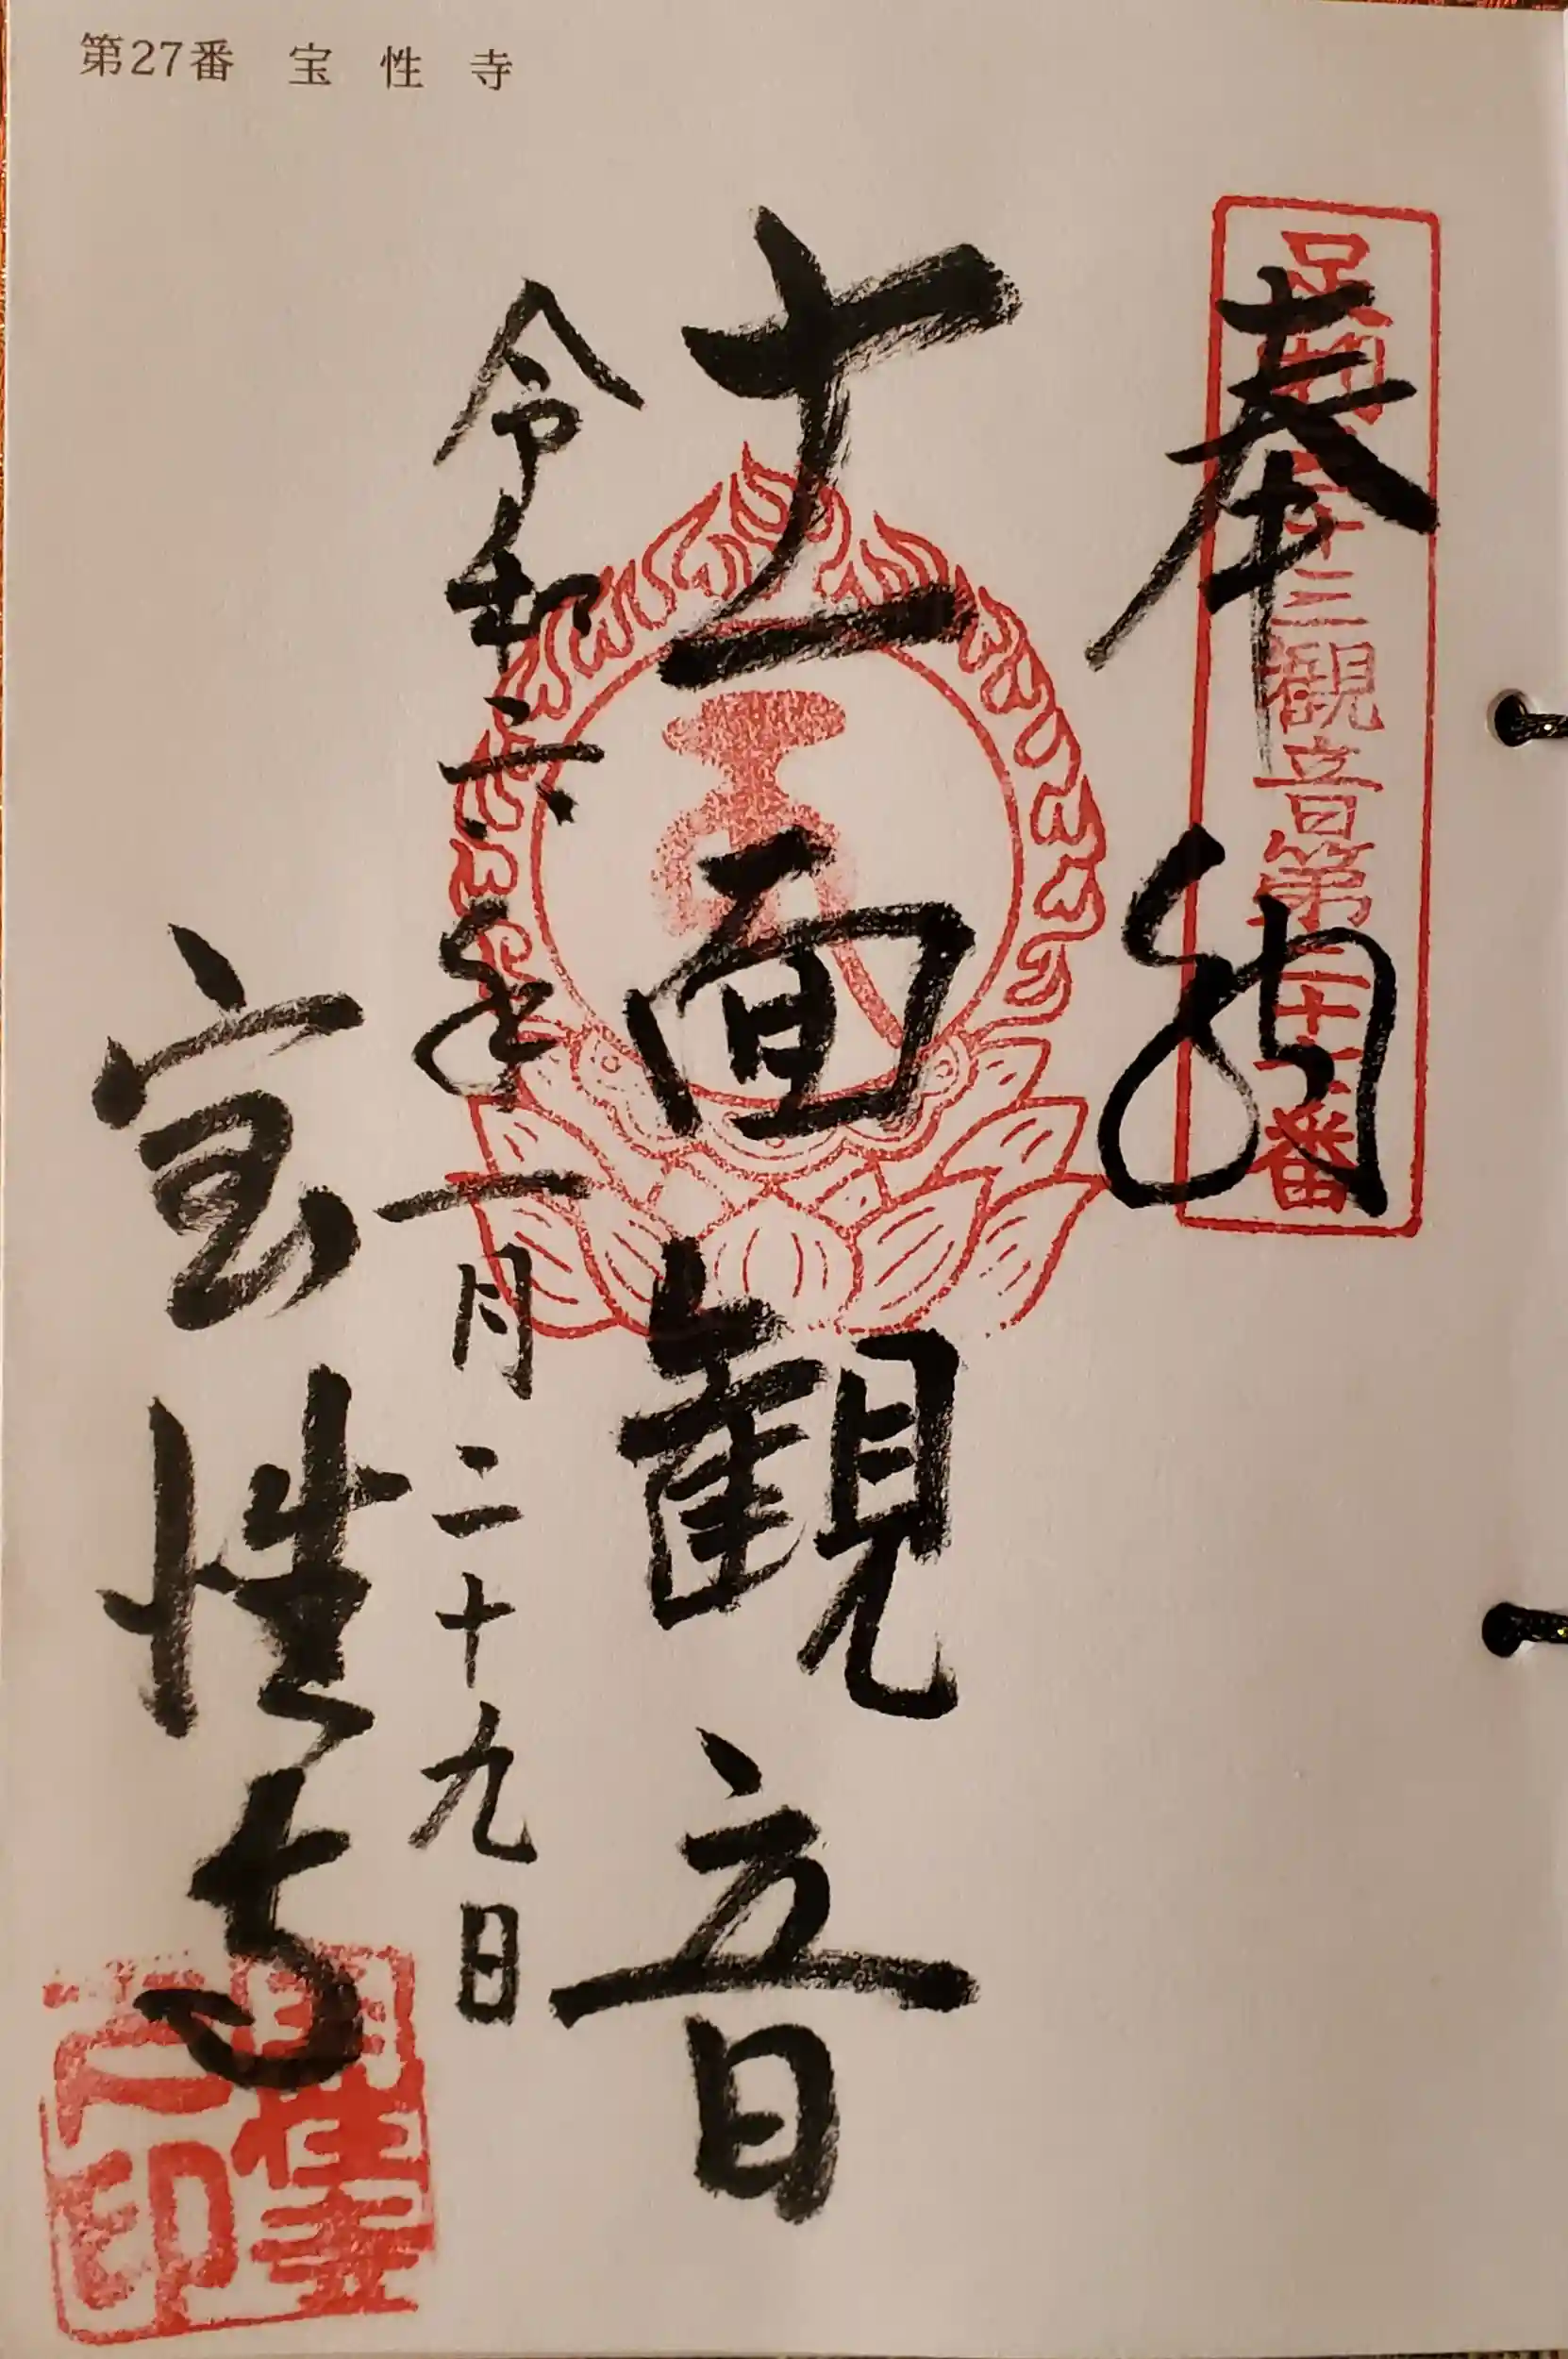 第27番 宝性寺
足利三十三觀音第二十七番
奉納
十一面観音
令和六年一月二十九日
宝性寺